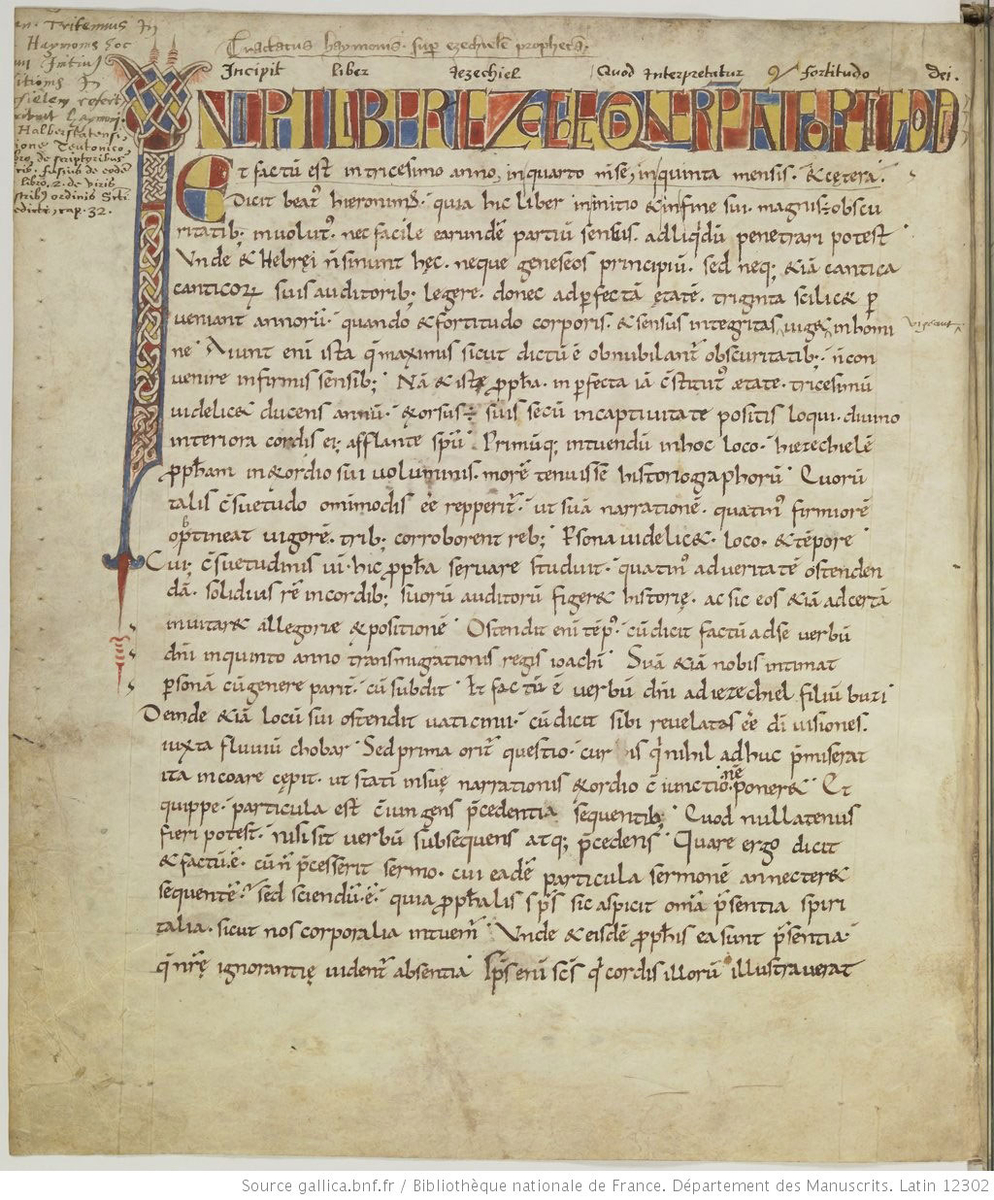 Tritemius In
Haymonis hoc
Halberstatensi
libro. 2. de viris
cap. 32.
Tractatus haymonis. sup ezechielē prophetā.
Incipit liber Iezechiel Quod Interpretatur fortitudo dei.
Et factū est in tricesimo anno, in quarto mēse, in quinta mensis. & cętera.
Dicit beat' hieronim'. quia hic liber in initio & in fine sui. magnis obscu
ritatib; inuolut'. nec facile earundē partiū sensus. ad liqidū penetrari potest
Vnde & Hebręi n̄ sinunt hęc. neque geneseos principiū. sed neq; & iā cantica
canticoꝝ suis auditorib; legere. donec ad ꝑfectā ętatē. triginta scilic& ꝑ
ueniant annorū. quando & fortitudo corporis. & sensus integritas uig& in homi
uigeant
ne. Aiunt eni ista q̄ maximis sicut dictū ē obnubilant obscuritatib;. n̄ con
uenire infirmis sensib; Nā & iste ꝓpħa. in perfecta iā c̄stitut' ætate. tricesimū
uidelic& ducens annū. & orsus ÷ suis secū in captiuitate positis loqui. diuino
interiora cordis ei; afflante spū. Primūq; intuendū in hoc loco. hiezechielē
ꝓpħam in exordio sui uoluminis. morē tenuisse historiographorū. Quorū
talis c̄suetudo omimodis eē repperit'. ut suā narrationē. quatin' firmiorē
optineat uigorē. trib; corroborent reb; Psona uidelic&. loco. & tēpore
Cui; c̄suetudinis uī. hic ꝓpħa seruare studuit. quatin' ad ueritatē ostenden
dā. solidius rē in cordib; suorū auditorū figer& historię. ac sic eos & iā ad certā
inuitar& allegoriæ expositionē. Ostendit eni tēp'. cū dicit factū ad se uerbū
dn̄i in quinto anno transmigrationis regis ioachī. Suā & iā nobis intimat
ꝑsonā cū genere parit'. cū subdit. Et factū ē uerbū dn̄i ad iezechiel filiū buzi
Deinde & iā locū sui ostendit uaticinii. cū dicit sibi reuelatas eē dī uisiones.
iuxta fluuiū chobar. Sed prima orit' questio. cur is q̄ nihil adhuc p̄miserat
ita incoare cępit. ut statī in suę narrationis exordio c̄iunctionē poner&. Et
quippe. particula est c̄iungens p̄cedentia sequentib; Quod nullatenus
fieri potest. nisi sit uerbū subsequens atq; p̄cedens. Quare ergo dicit
& factū.ē. cū n̄ p̄cesserit sermo. cui eadē particula sermonē annecter&
sequentē. sed sciendū.ē. quia ꝓpħalis sp̄s sic aspicit om̄ia p̄sentia spiri
talia. sicut nos corporalia intuem'. Vnde & eisdē ꝓpħis ea sunt p̄sentia.
q̄ nr̄ę ignorantię uident' absentia. Ip̄s eni sc̄s q̄ cordis illorū illustrauerat
Source gallica.bnf.fr / Bibliothèque nationale de France. Département des Manuscrits. Latin 12302